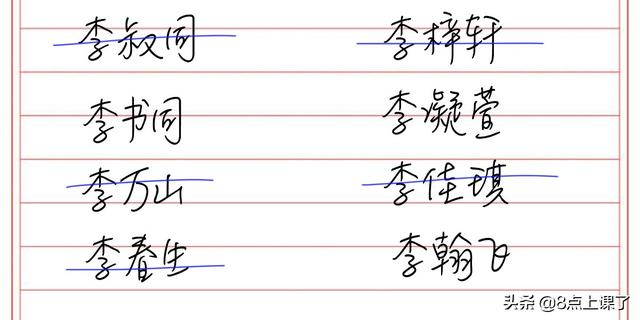 李叔同 李梓轩
李书同 李凝萱
李万山 李佳琪
李春生 李翰飞
头条 @8点上课了